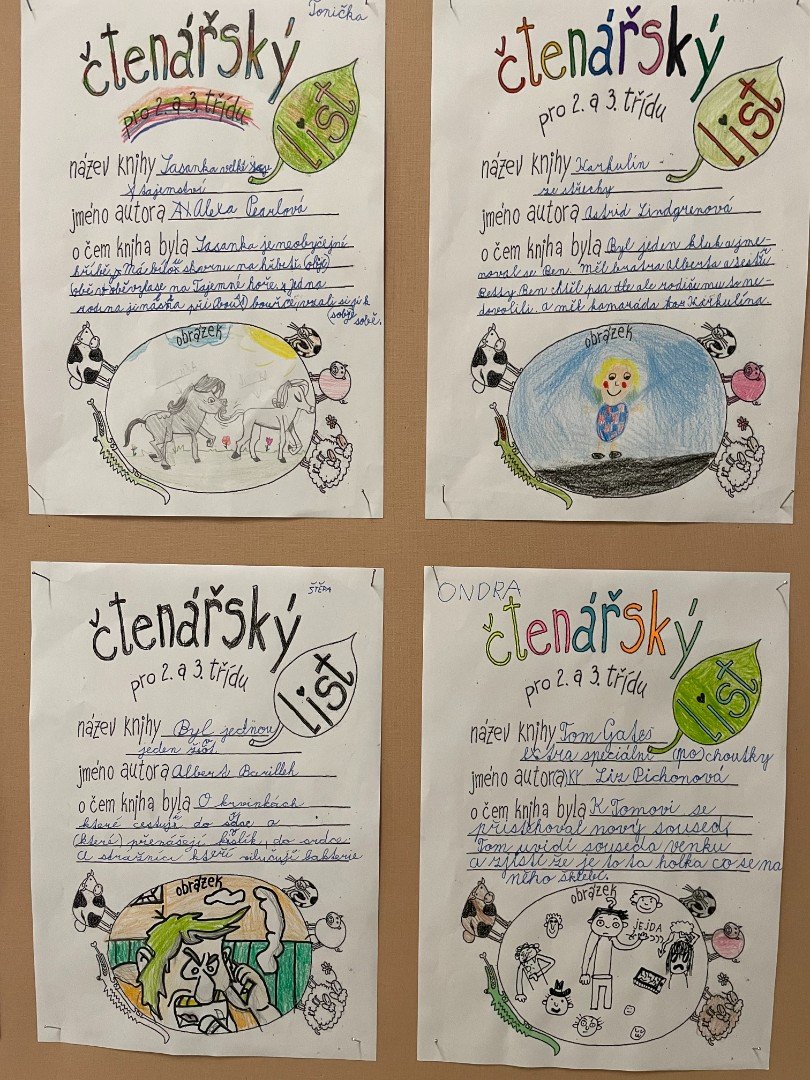 Tonička
čtenářský
list
pro 2. a 3. třídu
název knihy Sasanka velké
tajemství
jméno autora Alexa Pearlová
o čem kniha byla Sasanka je neobyčejní
hříbě, Má bílou skvrnu na hřbetě (obje)
obě v oběvylase na Tajemné hoře
rodina ji našla při bouřce, vzali si ji k
(sobje) sobě.
obrázek
čtenářský
list
pro 2. a 3. třídu
název knihy Karkulín
ze střechy
jméno autora Astrid Lindgrenová
o čem kniha byla Byl jeden kluk a jme-
noval se Ben. Měl bratra Alberta a sestřů
Betty Ben chtěl psa tle ale rodiči mu to ne-
dovolili a měl kamaráda kar Karkulína.
obrázek
ŠTĚPA
čtenářský
list
pro 2. a 3. třídu
název knihy Byl jednou
jeden život
jméno autora Albert Barillek
o čem kniha byla O krvinkách
které cestují do srdce a
(které) přenášejí kislík do srdce.
a strážníci kteří zlučují bakterie
obrázek
ONDRA
čtenářský
list
pro 2. a 3. třídu
název knihy Tom Gates
extra speciální (po)choutky
jméno autora Liz Pichonová
o čem kniha byla K Tomovi se
přistěhoval nový soused,
Tom uvidí souseda venku
a zjistí že je to ta holka co se na
něho šklebí.
obrázek
JEJDA